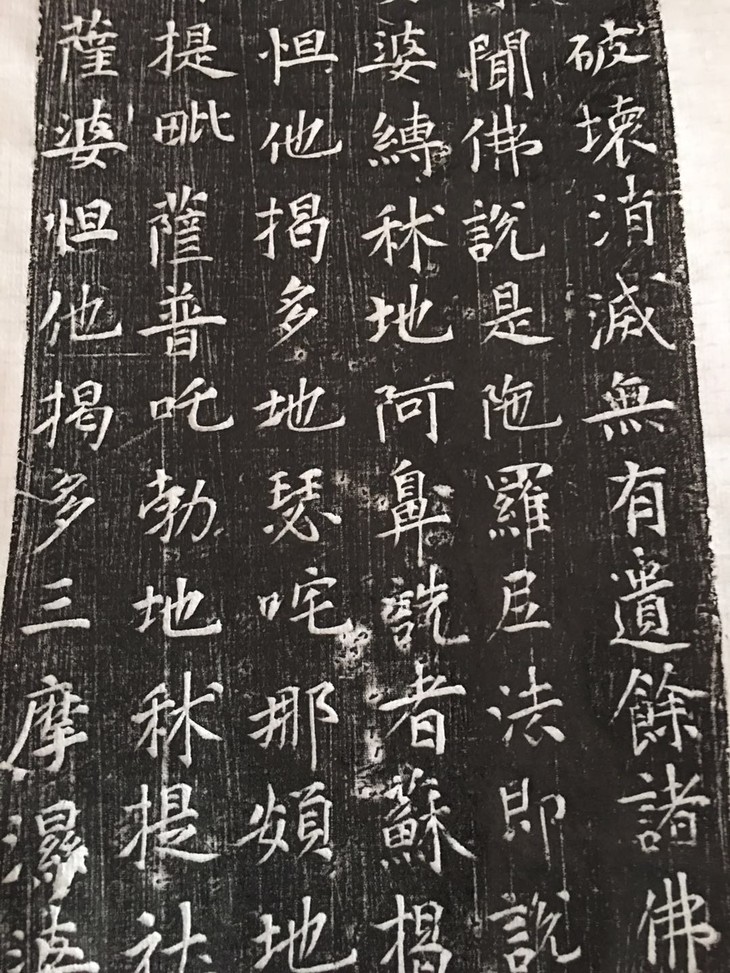 破壞消滅無有遺餘諸佛
聞佛說是陁羅尼法即說
婆縛秫地阿鼻詵者蘇揭
怛他揭多地瑟咤那頞地
提毗薩普吒勃地秫提
薩婆怛他揭多三摩濕婆